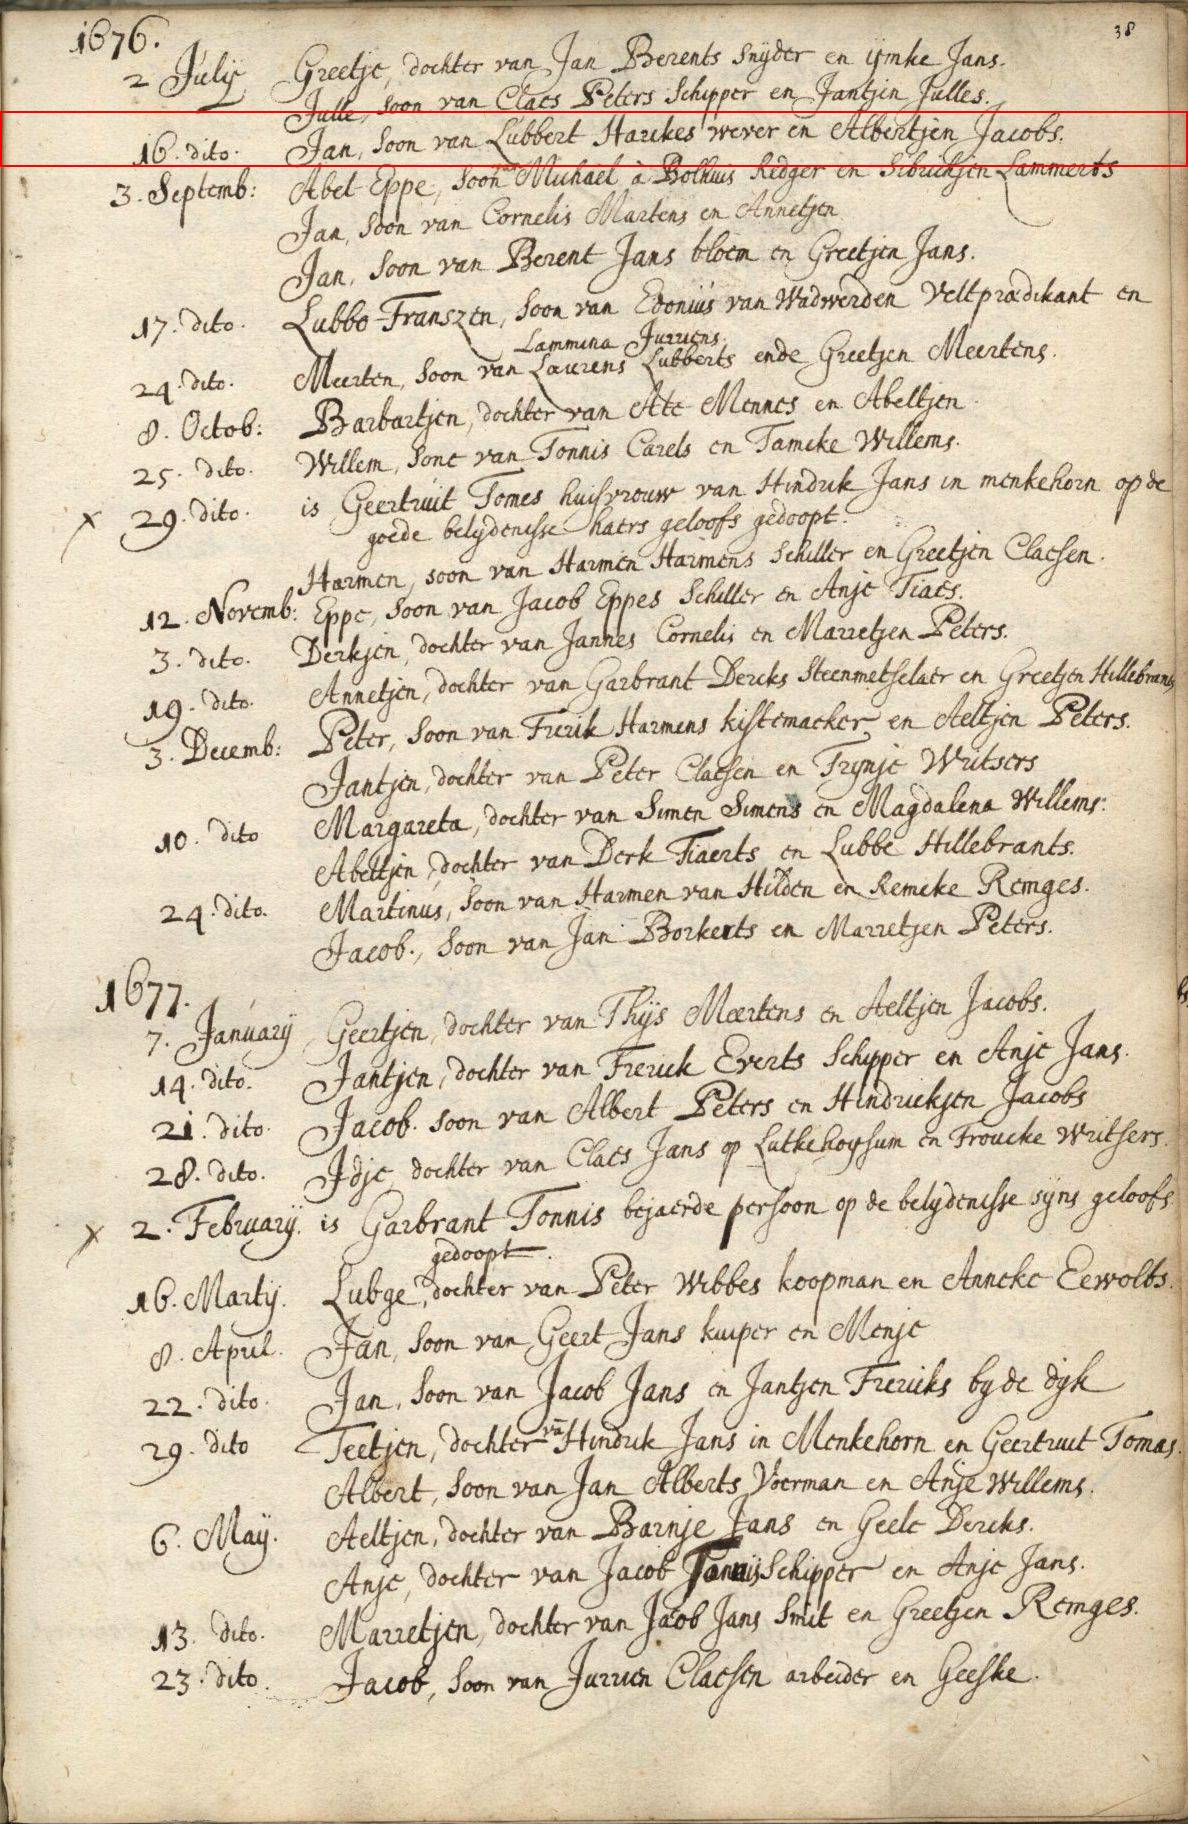 38
1676.
2 Julij Greetje, dochter van Jan Berents Snyder en ijmke Jans.
Julle, soon van Claes Peters Schipper en Jantjen Julles.
16. dito. Jan, soon van Lubbert Harckes wever en Albertjen Jacobs.
3. Septemb: Abel Eppe, soon van Michael à Bolhuis Redger en Sibrichjen Lammerts
Jan, soon van Cornelis Martens en Annetjen
Jan, soon van Berent Jans bloem en Greetjen Jans.
17. dito. Lubbo Franszen, soon van Edonius van Wadwerden Veltprædikant en
Lammina Jurriens.
24. dito. Meerten, soon van Laurens Lubberts ende Greetjen Meertens.
8. Octob: Barbartjen, dochter van Ate Mennes en Abeltjen
25. dito. Willem, sone van Tonnis Carels en Tamcke Willems.
x 29. dito. is Geertruit Tomes huisvrouw van Hindrik Jans in menkehorn op de
goede belydenisse haers geloofs gedoopt.
Harmen, soon van Harmen Harmens Schiller en Greetjen Claesen.
12. Novemb: Eppe, soon van Jacob Eppes Schiller en Anje Tiaes.
3. dito. Derkjen, dochter van Jannes Cornelis en Marretjen Peters.
19. dito. Annetjen, dochter van Garbrant Dercks Steenmetselaer en Greetjen Hillebrants
3. Decemb: Peter, soon van Frerik Harmens kistemaeker, en Aeltjen Peters.
Jantjen, dochter van Peter Claesen en Trynje Writsers
10. dito Margareta, dochter van Simen Simens en Magdalena Willems:
Abeltjen, dochter van Derk Tiaerts en Lubbe Hillebrants.
24. dito. Martinus, soon van Harmen van Hilden en Remcke Remges.
Jacob., soon van Jan Borkerts en Marretjen Peters.
1677.
7. January Geertjen, dochter van Thijs Meertens en Aeltjen Jacobs.
14. dito. Jantjen, dochter van Frerick Everts Schipper en Anje Jans.
21. dito. Jacob. soon van Albert Peters en Hindrickjen Jacobs
28. dito. Idje, dochter van Claes Jans op Lutkehoysum en Froucke Writsers.
x 2. February. is Garbrant Tonnis bejaerde persoon op de belydenisse syns geloofs
gedoopt.
16. Martij. Lubge, dochter van Peter Wibbes koopman en Anneke Eewolts.
8. April. Jan, soon van Geert Jans kuiper en Menje
22. dito. Jan, soon van Jacob Jans en Jantjen Frericks by de dyk
29. dito Teetjen, dochter vā Hindrik Jans in Menkehorn en Geertruit Tomas.
Albert, soon van Jan Alberts Voerman en Anje Willems.
6. Maij. Aeltjen, dochter van Barnje Jans en Geele Dercks.
Anje, dochter van Jacob Tonnis Schipper en Anje Jans.
13. dito. Marretjen, dochter van Jacob Jans Smit en Greetjen Remges.
23. dito. Jacob, soon van Jurrien Claesen arbeider en Geeske.